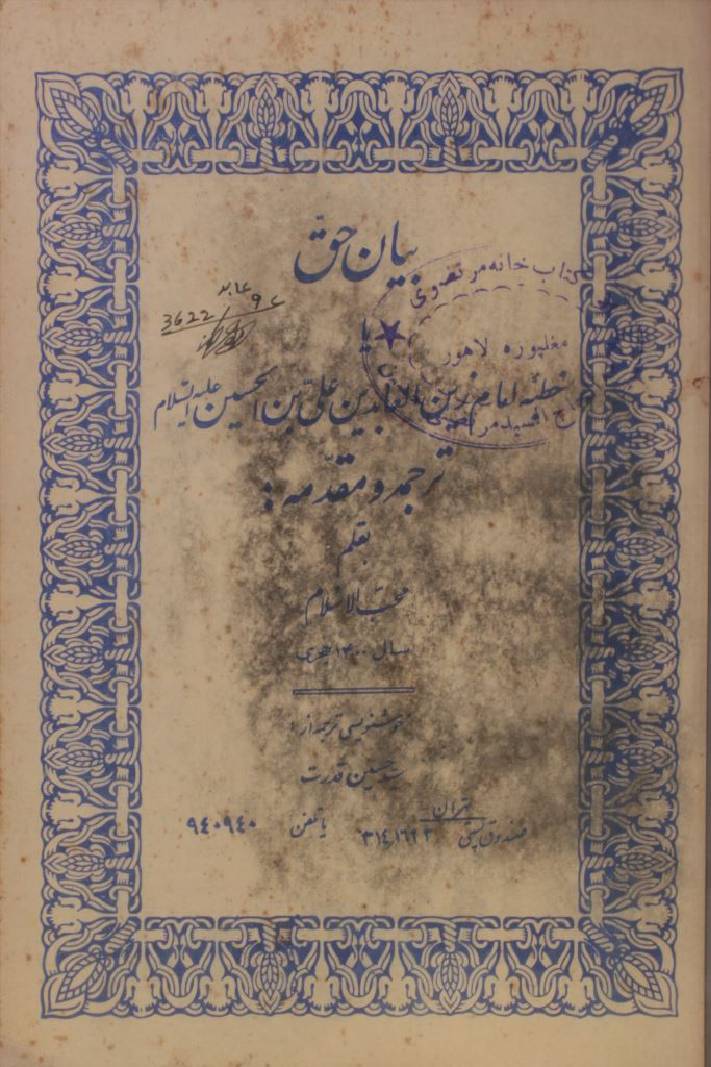 بیان حقّ
یا
خطبه امام زین العابدین علیّ بن الحسین علیه السّلام
ترجمه و مقدّمه :
بقلم
محبّ الاسلام
سال ۱۴۰۰ هجری
خوشنویسی ترجمه از :
سید حسین قدرت
تهران
صندوق پستی یا تلفن ۹٤۰۹٤۰
کتاب خانه مرتضوی
مغلپوره لاهور
3622